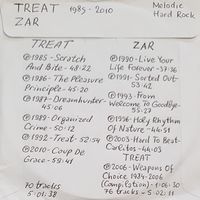 TREAT 1985-2010 Melodic
ZAR Hard Rock
TREAT
℗1985-Scratch
And Bite-48:22
℗1986-The Pleasure
Principle-45:20
℗1987-Dreamhunter-
45:06
℗1989-Organized
Crime-50:12
℗1992-Treat-52:54
℗2010-Coup De
Grace-59:41
70 tracks
5:01:38
ZAR
℗1990-Live Your
Life Forever-37:36
℗1991-Sorted Out-
53:42
℗1993-From
Welcome To Goodbye-
55:27
℗1996-Holy Rhythm
Of Nature-44:51
℗2003-Hard To Beat-
Carlitos-44:03
TREAT
℗2006-Weapons Of
Choice 1984-2006
(Compilation)-1:06:30
76 tracks-5:02:11